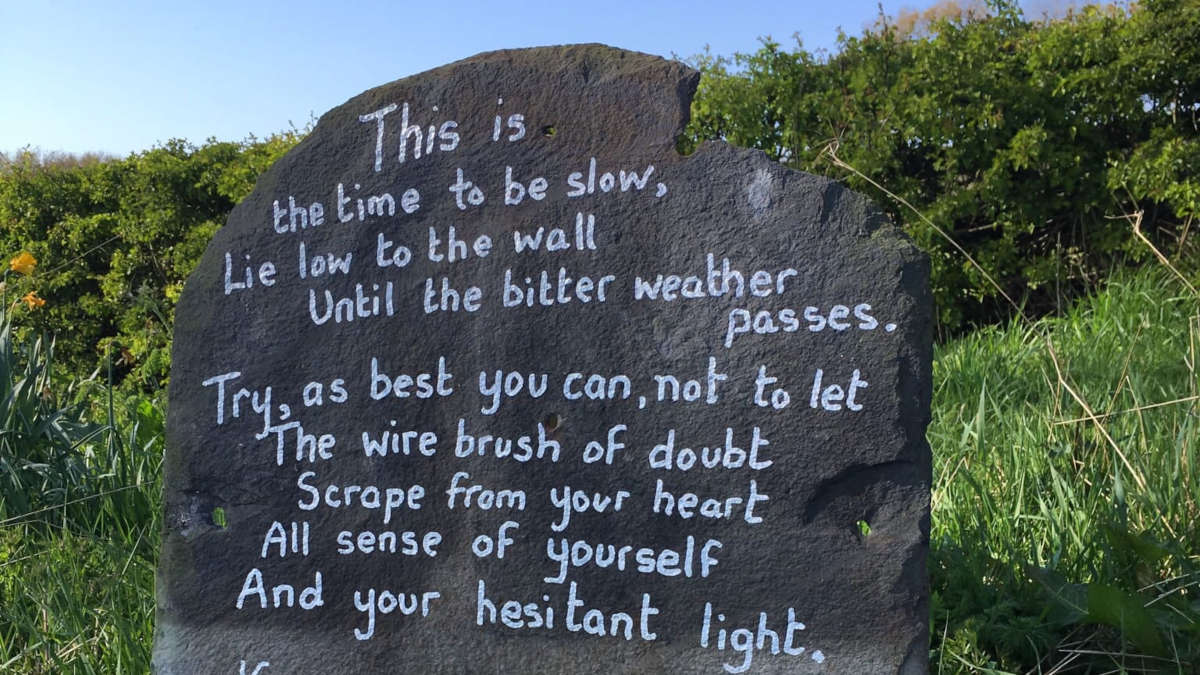 This is
the time to be slow,
Lie low to the wall
Until the bitter weather
passes.
Try, as best you can, not to let
The wire brush of doubt
Scrape from your heart
All sense of yourself
And your hesitant light.